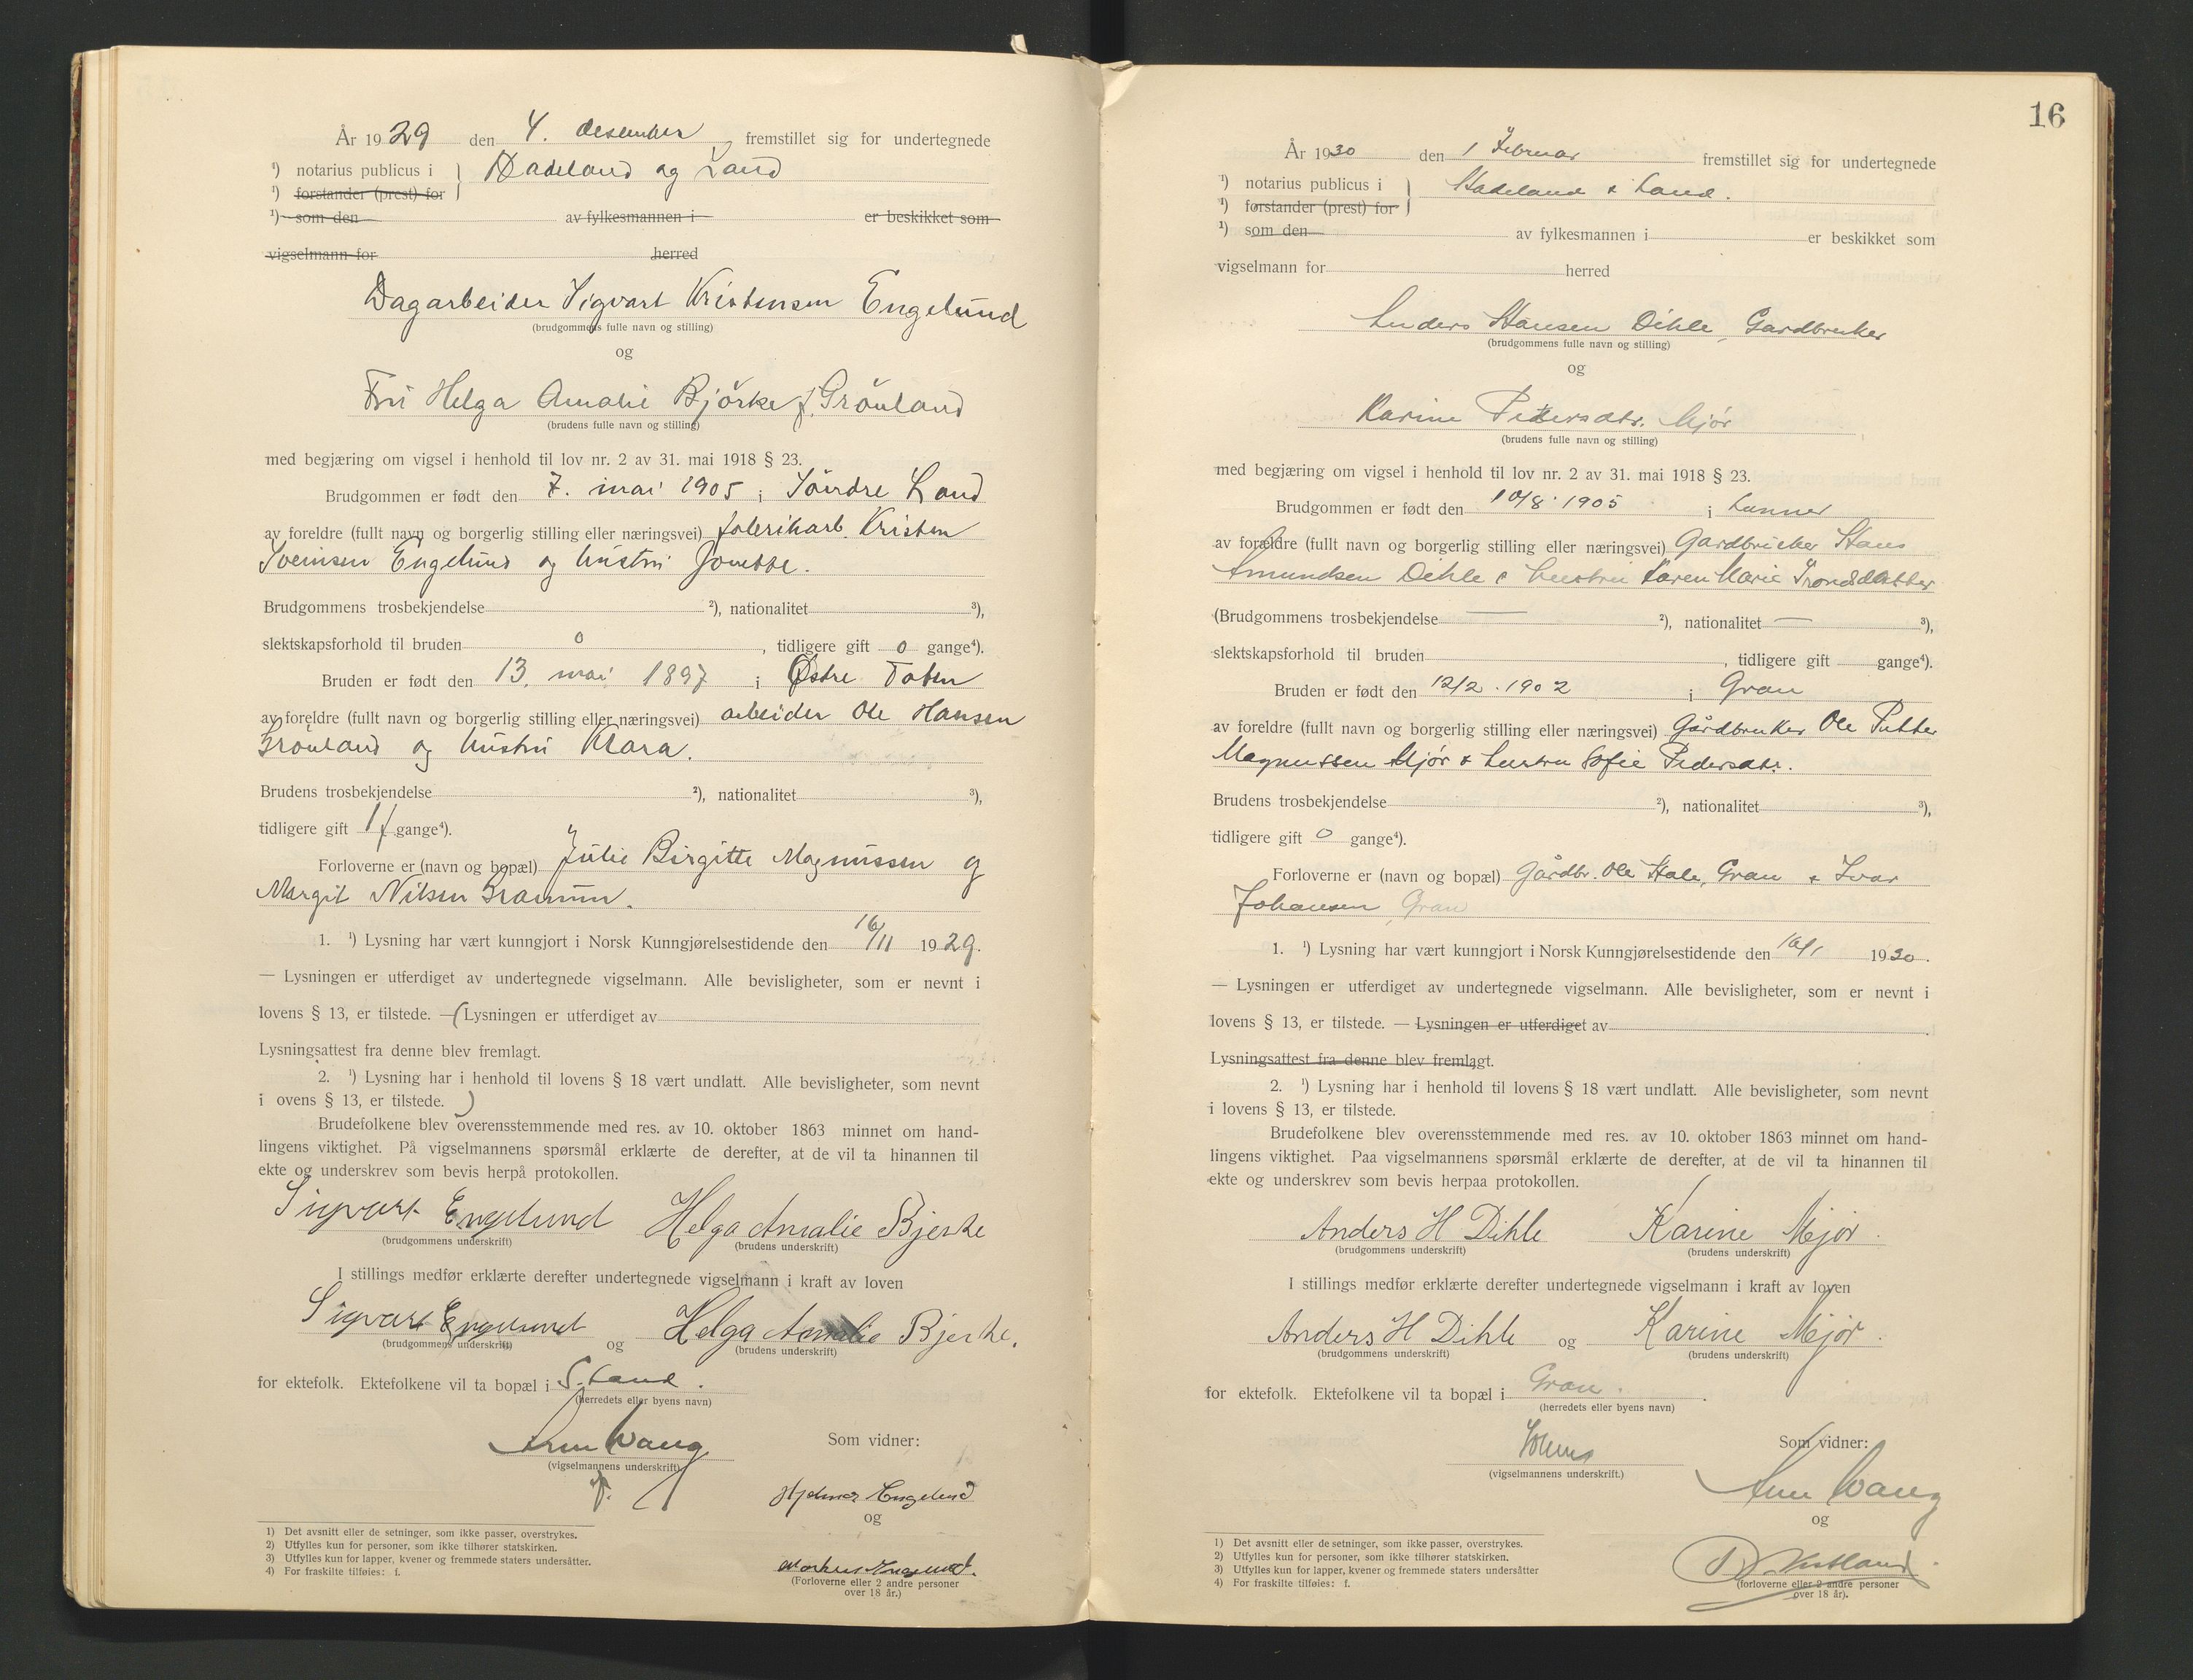 År 1929 den 4. desember fremstillet sig for undertegnede
¹) notarius publicus i } Hadeland og Land
¹) forstander (prest) for
¹) som den av fylkesmannen i er beskikket som
vigselmann for herred
Dagarbeider Sigvart Kristensen Engelund
(brudgommens fulle navn og stilling)
og
Fru Helga Amalie Björke f. Grönland
(brudens fulle navn og stilling)
med begjæring om vigsel i henhold til lov nr. 2 av 31. mai 1918 § 23.
Brudgommen er født den 7. mai 1905 i Söndre Land
av foreldre (fullt navn og borgerlig stilling eller næringsvei) Kristen
Sveinsen Engelund og hustru
Brudgommens trosbekjendelse ²), nationalitet ³),
slektskapsforhold til bruden 0, tidligere gift 0 gange⁴).
Bruden er født den 13. mai 1897 i Østre Toten
av foreldre (fullt navn og borgerlig stilling eller næringsvei) arbeider Ole Hansen
Grönland og hustru Klara.
Brudens trosbekjendelse ²), nationalitet ³),
tidligere gift 1 f. gange⁴).
Forloverne er (navn og bopæl) Julie Birgitte Magnussen og
Margit Nilsen Granum.
1. ¹) Lysning har vært kunngjort i Norsk Kunngjørelsestidende den 16/11 1929.
— Lysningen er utferdiget av undertegnede vigselmann. Alle bevisligheter, som er nevnt i
lovens § 13, er tilstede. — (Lysningen er utferdiget av
Lysningsattest fra denne blev fremlagt.
2. ¹) Lysning har i henhold til lovens § 18 vært undlatt. Alle bevisligheter, som nevnt
i ovens § 13, er tilstede. )
Brudefolkene blev overensstemmende med res. av 10. oktober 1863 minnet om hand-
lingens viktighet. På vigselmannens spørsmål erklærte de derefter, at de vil ta hinannen til
ekte og underskrev som bevis herpå protokollen.
Sigvart Engelund Helga Amalie Bjerke
(brudgommens underskrift) (brudens underskrift)
I stillings medfør erklærte derefter undertegnede vigselmann i kraft av loven
Sigvart Engelund og Helga Amalie Bjerke.
(brudgommens underskrift) (brudens underskrift)
for ektefolk. Ektefolkene vil ta bopæl i S. Land.
(herredets eller byens navn)
Arne Wang Som vidner:
(vigselmannens underskrift)
f. Hjelmar Engelund
og
Engelund.
(Forloverne eller 2 andre personer
over 18 år.)
1) Det avsnitt eller de setninger, som ikke passer, overstrykes.
2) Utfylles kun for personer, som ikke tilhører statskirken.
3) Utfylles kun for lapper, kvener og fremmede staters undersåtter.
4) For fraskilte tilføies: f.
16
År 1930 den 1 Februar fremstillet sig for undertegnede
¹) notarius publicus i } Hadeland & Land.
¹) forstander (prest) for
¹) som den av fylkesmannen i er beskikket som
vigselmann for herred
Anders Hansen Dihle, Gardbruker
(brudgommens fulle navn og stilling)
og
Karine Pedersdtr. Mjør
(brudens fulle navn og stilling)
med begjæring om vigsel i henhold til lov nr. 2 av 31. mai 1918 § 23.
Brudgommen er født den 10/8 1905 i Lunner
av foreldre (fullt navn og borgerlig stilling eller næringsvei) Gardbruker Hans
Amundsen Dihle & hustru Karen Marie Trondsdatter
(Brudgommens trosbekjendelse — ²), nationalitet — ³),
slektskapsforhold til bruden , tidligere gift gange⁴).
Bruden er født den 12/2. 1902 i Gran
av foreldre (fullt navn og borgerlig stilling eller næringsvei) Gårdbruker Ole Petter
Magnussen Mjør & hustru Sofie Pedersdtr.
Brudens trosbekjendelse ²), nationalitet ³),
tidligere gift 0 gange⁴).
Forloverne er (navn og bopæl) Gårdbr. Ole Hale, Gran & Ivar
Johansen, Gran
1. ¹) Lysning har vært kunngjort i Norsk Kunngjørelsestidende den 1930.
— Lysningen er utferdiget av undertegnede vigselmann. Alle bevisligheter, som er nevnt i
lovens § 13, er tilstede. — Lysningen er utferdiget av
Lysningsattest fra denne blev fremlagt.
2. ¹) Lysning har i henhold til lovens § 18 vært undlatt. Alle bevisligheter, som nevnt
i lovens § 13, er tilstede.
Brudefolkene blev overensstemmende med res. av 10. oktober 1863 minnet om hand-
lingens viktighet. Paa vigselmannens spørsmål erklærte de derefter, at de vil ta hinannen til
ekte og underskrev som bevis herpaa protokollen.
Anders H Dihle Karine Mjør.
(brudgommens underskrift) (brudens underskrift)
I stillings medfør erklærte derefter undertegnede vigselmann i kraft av loven
Anders H Dihle og Karine Mjør.
(brudgommens underskrift) (brudens underskrift)
for ektefolk. Ektefolkene vil ta bopæl i Gran.
(herredets eller byens navn)
Som vidner:
(vigselmannens underskrift.)
Arne Wang
og
(forloverne eller 2 andre personer
over 18 år).
1) Det avsnitt eller de setninger, som ikke passer, overstrykes.
2) Utfylles kun for personer, som ikke tilhører statskirken.
3) Utfylles kun for lapper, kvener og fremmede staters undersåtter
4) For fraskilte tilføies: f.